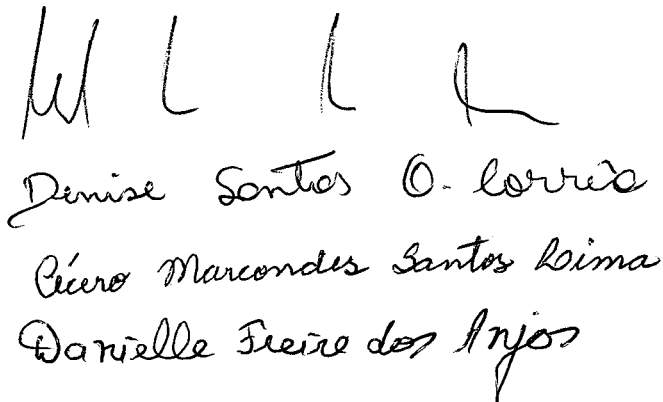 Denise Santos O. Corrêa
Cícero Marcondes Santos Lima
Danielle Freire dos Anjos